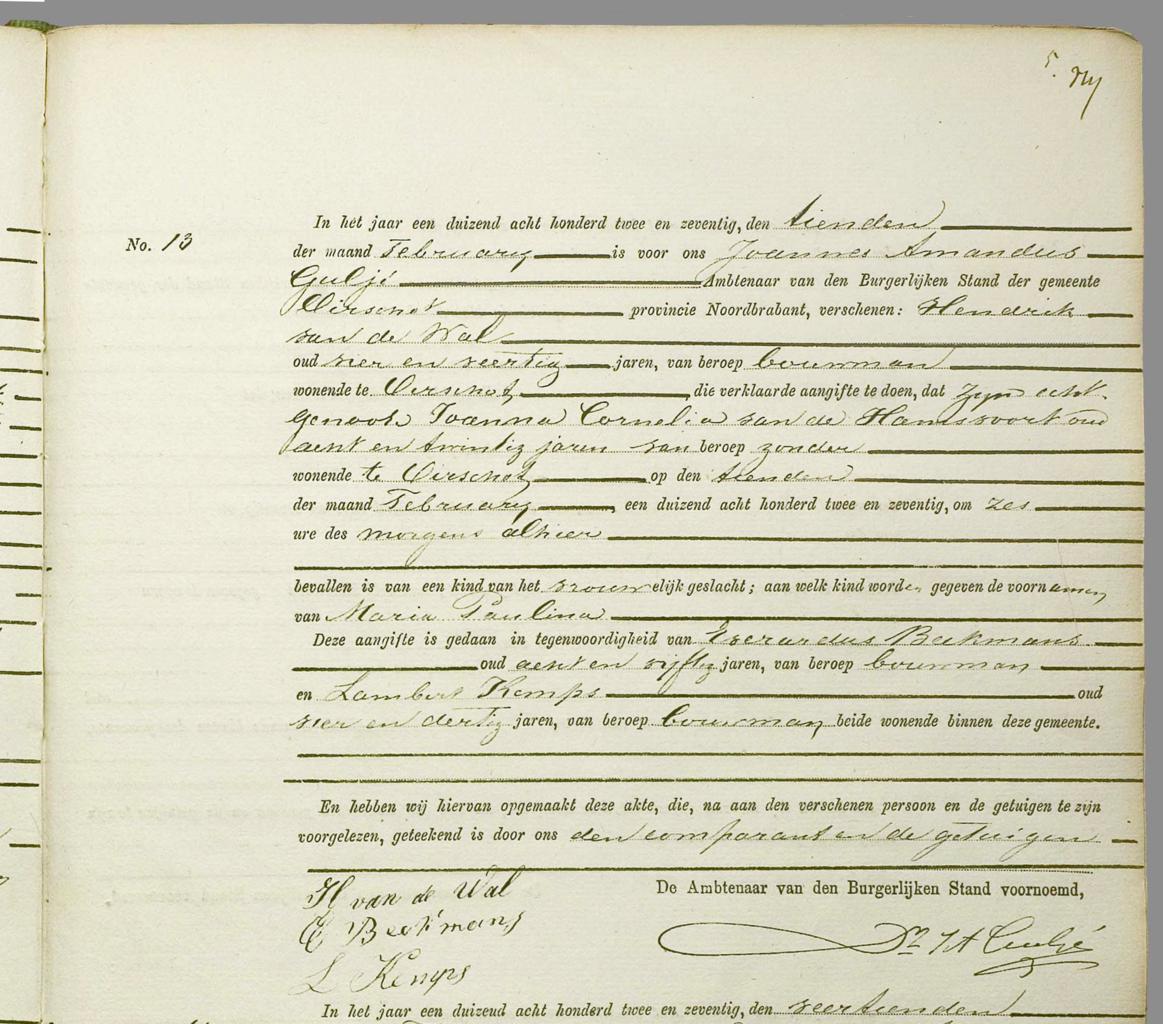 5.
No. 13
In het jaar een duizend acht honderd twee en zeventig, den tienden
der maand February is voor ons Joannes Amandus
Guljé Ambtenaar van den Burgerlijken Stand der gemeente
Oirschot provincie Noordbrabant, verschenen: Hendrik
van de Wal
oud vier en veertig jaren, van beroep bouwman
wonende te Oirschot, die verklaarde aangifte te doen, dat zyn echt-
genoote Joanna Cornelia van de Hamsvoort oud
acht en twintig jaren van beroep zonder
wonende te Oirschot op den tienden
der maand February, een duizend acht honderd twee en zeventig, om zes
ure des morgens alhier
bevallen is van een kind van het vrouwelijk geslacht; aan welk kind worden gegeven de voornamen
van Maria Paulina
Deze aangifte is gedaan in tegenwoordigheid van Everardus Beekmans
oud acht en vijftig jaren, van beroep bouwman
en Lambert Kemps oud
vier en dertig jaren, van beroep bouwman beide wonende binnen deze gemeente.
En hebben wij hiervan opgemaakt deze akte, die, na aan den verschenen persoon en de getuigen te zijn
voorgelezen, geteekend is door ons den comparant en de getuigen
H van de Wal De Ambtenaar van den Burgerlijken Stand voornoemd,
E Beekmans
Dr. J A Guljé
L Kemps
In het jaar een duizend acht honderd twee en zeventig, den veertienden